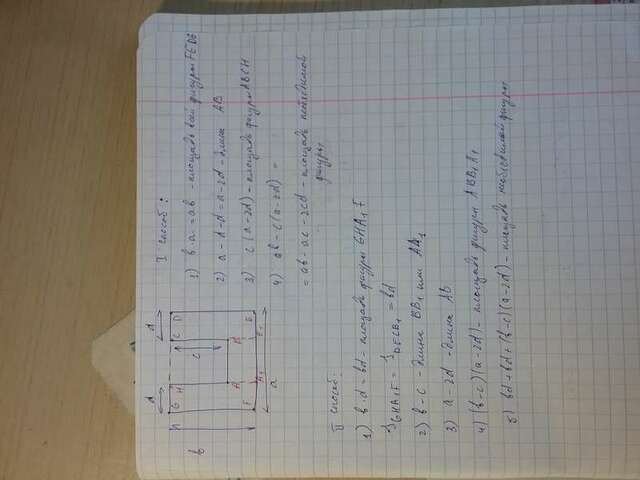 I способ:
1) b·a = ab - площадь всей фигуры FEDG
2) a - d - d = a - 2d - длина AB
3) c(a-2d) - площадь фигуры ABCH
4) ab - c(a-2d) =
= ab - ac - 2cd - площадь необходимой
фигуры
d
d
b
G
H
C
D
c
A
B
F
A₁
B₁
E
a
II способ:
1) b·d = bd - площадь фигуры GHA₁F
S GHA₁F = S DECB₁ = bd
2) b-c - длина BB₁ или AA₁
3) a-2d - длина AB
4) (b-c)(a-2d) - площадь фигуры ABB₁A₁
5) bd+bd+(b-c)(a-2d) - площадь необходимой фигуры